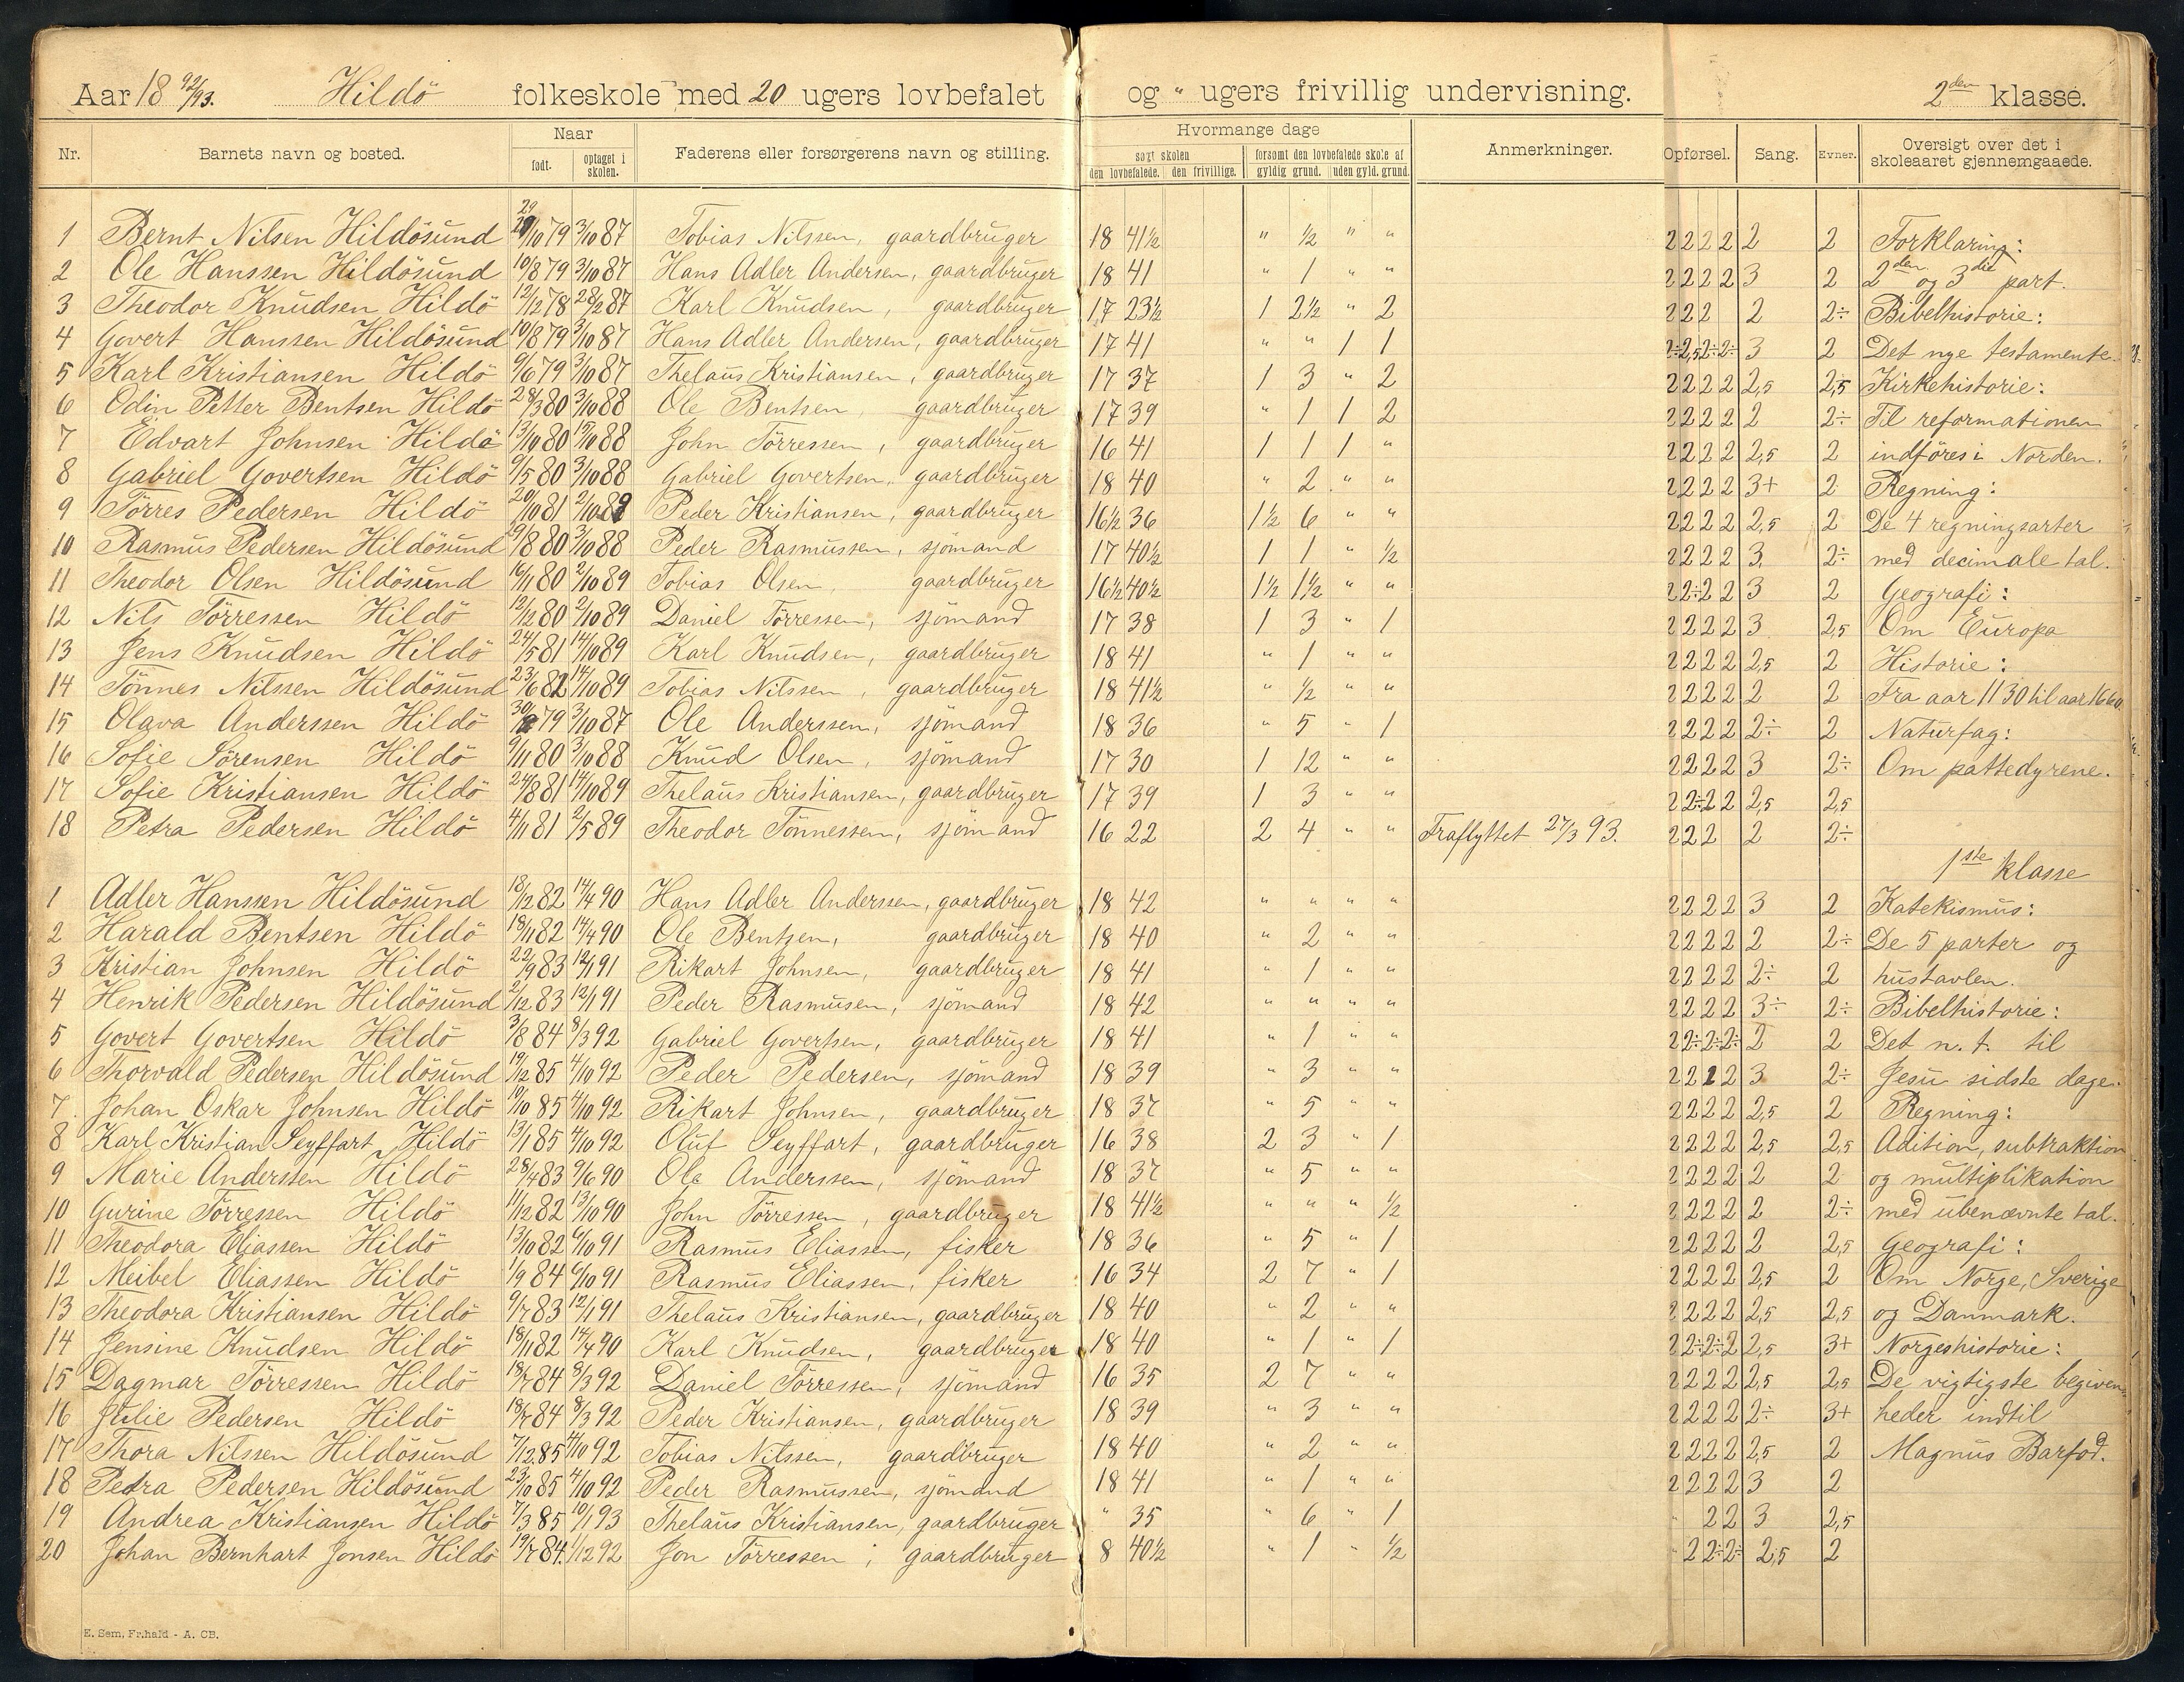 Aar 18 92/93. Hildö folkeskole med 20 ugers lovbefalet og " ugers frivillig undervisning. 2den klasse.
Nr. Barnets navn og bosted. Naar født. optaget i skolen. Faderens eller forsørgerens navn og stilling. Hvormange dage søgt skolen den lovbefalede. den frivillige. forsømt den lovbefalede skole af gyldig grund. uden gyld. grund. Anmerkninger. Opførsel. Sang. Evner. Oversigt over det i skoleaaret gjennemgaaede.
1 Bernt Nilsen Hildösund 29/10 79 3/10 87 Tobias Nilssen, gaardbruger 18 41½ " ½ " " 2 2 2 2 2 2 Forklaring:
2 Ole Hanssen Hildösund 10/8 79 3/10 87 Hans Adler Andersen, gaardbruger 18 41 " 1 " " 2 2 2 2 3 2 2den og 3die part.
3 Theodor Knudsen Hildö 12/12 78 28/2 87 Karl Knudsen, gaardbruger 17 23½ 1 2½ " 2 2 2 2 2 2÷ Bibelhistorie:
4 Govert Hanssen Hildösund 10/8 79 3/10 87 Hans Adler Andersen, gaardbruger 17 41 " " 1 1 2÷ 2,5 2÷ 2÷ 3 2 Det nye testamente.
5 Karl Kristiansen Hildö 9/6 79 3/10 87 Thelaus Kristiansen, gaardbruger 17 37 1 3 " 2 2 2 2 2 2,5 2,5 Kirkehistorie:
6 Odin Petter Bentsen Hildö 28/3 80 3/10 88 Ole Bentsen gaardbruger 17 39 " 1 1 2 2 2 2 2 2 2÷ Til reformationen
7 Edvart Johnsen Hildö 13/10 80 15/10 88 John Törressen, gaardbruger 16 41 1 1 1 " 2 2 2 2 2,5 2 indföres i Norden.
8 Gabriel Govertsen Hildö 9/5 80 3/10 88 Gabriel Govertsen, gaardbruger 18 40 " 2 " " 2 2 2 2 3+ 2 Regning:
9 Törres Pedersen Hildö 20/10 81 2/10 89 Peder Kristiansen, gaardbruger 16½ 36 1½ 6 " " 2 2 2 2 2,5 2 De 4 regningsarter
10 Rasmus Pedersen Hildösund 9/8 80 3/10 88 Peder Rasmussen, sjömand 17 40½ 1 1 " ½ 2 2 2 2 3. 2÷ med decimale tal.
11 Theodor Olsen Hildösund 16/11 80 2/10 89 Tobias Olsen, gaardbruger 16½ 40½ 1½ 1½ " " 2 2÷ 2 2 3 2 Geografi:
12 Nils Törressen Hildö 12/12 80 2/10 89 Daniel Törressen, sjömand 17 38 1 3 " 1 2 2 2 2 3 2,5 Om Europa
13 Jens Knudsen Hildö 24/5 81 14/10 89 Karl Knudsen, gaardbruger 18 41 " 1 " " 2 2 2 2 2,5 2 Historie:
14 Tönnes Nilssen Hildösund 23/6 82 14/10 89 Tobias Nilssen, gaardbruger 18 41½ " ½ " " 2 2 2 2 2 2 Fra aar 1130 til aar 1660.
15 Olava Anderssen Hildö 79 3/10 87 Ole Anderssen, sjömand 18 36 " 5 " 1 2 2 2 2 2÷ 2 Naturfag:
16 Sofie Sörensen Hildö 9/11 80 3/10 88 Knud Olsen, sjömand 17 30 1 12 " " 2 2 2 2 3 2÷ Om pattedyrene.
17 Sofie Kristiansen Hildö 24/8 81 14/10 89 Thelaus Kristiansen, gaardbruger 17 39 1 3 " " 2 2÷ 2 2 2,5 2,5
18 Petra Pedersen Hildö 4/11 81 2/5 89 Theodor Tönnessen, sjömand 16 22 2 4 " " Fraflyttet 27/3 93. 2 2 2 2 2÷
1ste klasse
1 Adler Hanssen Hildösund 18/12 82 14/4 90 Hans Adler Anderssen, gaardbruger 18 42 " " " " 2 2 2 2 3 2 Katekismus:
2 Harald Bentsen Hildö 18/11 82 14/4 90 Ole Bentzen, gaardbruger 18 40 " 2 " " 2 2 2 2 2 2÷ De 5 parter og
3 Kristian Johnsen Hildö 22/9 83 12/1 91 Rikart Johnsen, gaardbruger 18 41 " 1 " " 2 2 2 2 2÷ 2 hustavlen.
4 Henrik Pedersen Hildösund 2/12 83 12/1 91 Peder Rasmusen, sjömand 18 42 " " " " 2 2 2 2 3÷ 2÷ Bibelhistorie:
5 Govert Govertsen Hildö 3/8 84 8/3 92 Gabriel Govertsen, gaardbruger 18 41 " 1 " " 2 2÷ 2÷ 2÷ 2 2 Det n. t. til
6 Thorvald Pedersen Hildösund 19/12 85 4/10 92 Peder Pedersen, sjömand 18 39 " 3 " " 2 2 2 2 3 2÷ Jesu sidste dage.
7. Johan Oskar Johnsen Hildö 10/10 85 4/10 92 Rikart Johnsen, gaardbruger 18 37 " 5 " " 2 2 2 2 2,5 2 Regning:
8 Karl Kristian Seyffart Hildö 13/1 85 4/10 92 Oluf Seyffart, gaardbruger 16 38 2 3 " 1 2 2 2 2 2,5 2,5 Adition, subtraktion
9 Marie Anderssen Hildö 28/4 83 9/6 90 Ole Anderssen, sjömand 18 37 " 5 " " 2 2 2 2 2 2 og multiplikation
10 Gurine Törressen Hildö 11/12 82 13/10 90 John Törressen, gaardbruger 18 41½ " " " ½ 2 2 2 2 2 2÷ med ubenævnte tal.
11 Theodora Eliassen Hildö 13/10 82 6/10 91 Rasmus Eliassen, fisker 18 36 " 5 " 1 2 2 2 2 2 2,5 Geografi:
12 Meibel Eliassen Hildö 1/9 84 6/10 91 Rasmus Eliassen, fisker 16 34 2 7 " 1 2 2 2 2 2,5 2 Om Norge, Sverige
13 Theodora Kristiansen Hildö 9/7 83 12/1 91 Thelaus Kristiansen, gaardbruger 18 40 " 2 " " 2 2 2 2 2,5 2,5 og Danmark.
14 Jensine Knudsen Hildö 18/11 82 14/4 90 Karl Knudsen, gaardbruger 18 40 " 1 " 1 2 2÷ 2÷ 2 2,5 3+ Norgeshistorie:
15 Dagmar Törressen Hildö 18/7 84 8/3 92 Daniel Törressen, sjömand 16 35 2 7 " " 2 2 2 2 2,5 2,5 De vigtigste begiven-
16 Julie Pedersen Hildö 18/7 84 8/3 92 Peder Kristiansen, gaardbruger 18 39 " 3 " " 2 2 2 2 2÷ 3+ heder indtil
17 Thora Nilssen Hildösund 7/12 85 4/10 92 Tobias Nilssen, gaardbruger 18 40 " 2 " " 2 2 2 2 2,5 2 Magnus Barfod.
18 Petra Pedersen Hildösund 23/10 85 4/10 92 Peder Rasmussen, sjömand 18 41 " 1 " " 2 2 2 2 3 2
19 Andrea Kristiansen Hildö 7/3 85 10/1 93 Thelaus Kristiansen, gaardbruger " 35 " 6 " 1 " 2 2 3 2,5
20 Johan Bernhart Jonsen Hildö 19/7 84. 1/12 92 Jon Törressen, gaardbruger 8 40½ " 1 " ½ " 2 2÷ 2÷ 2,5 2
E. Sem, Fr.hald - A. CB.